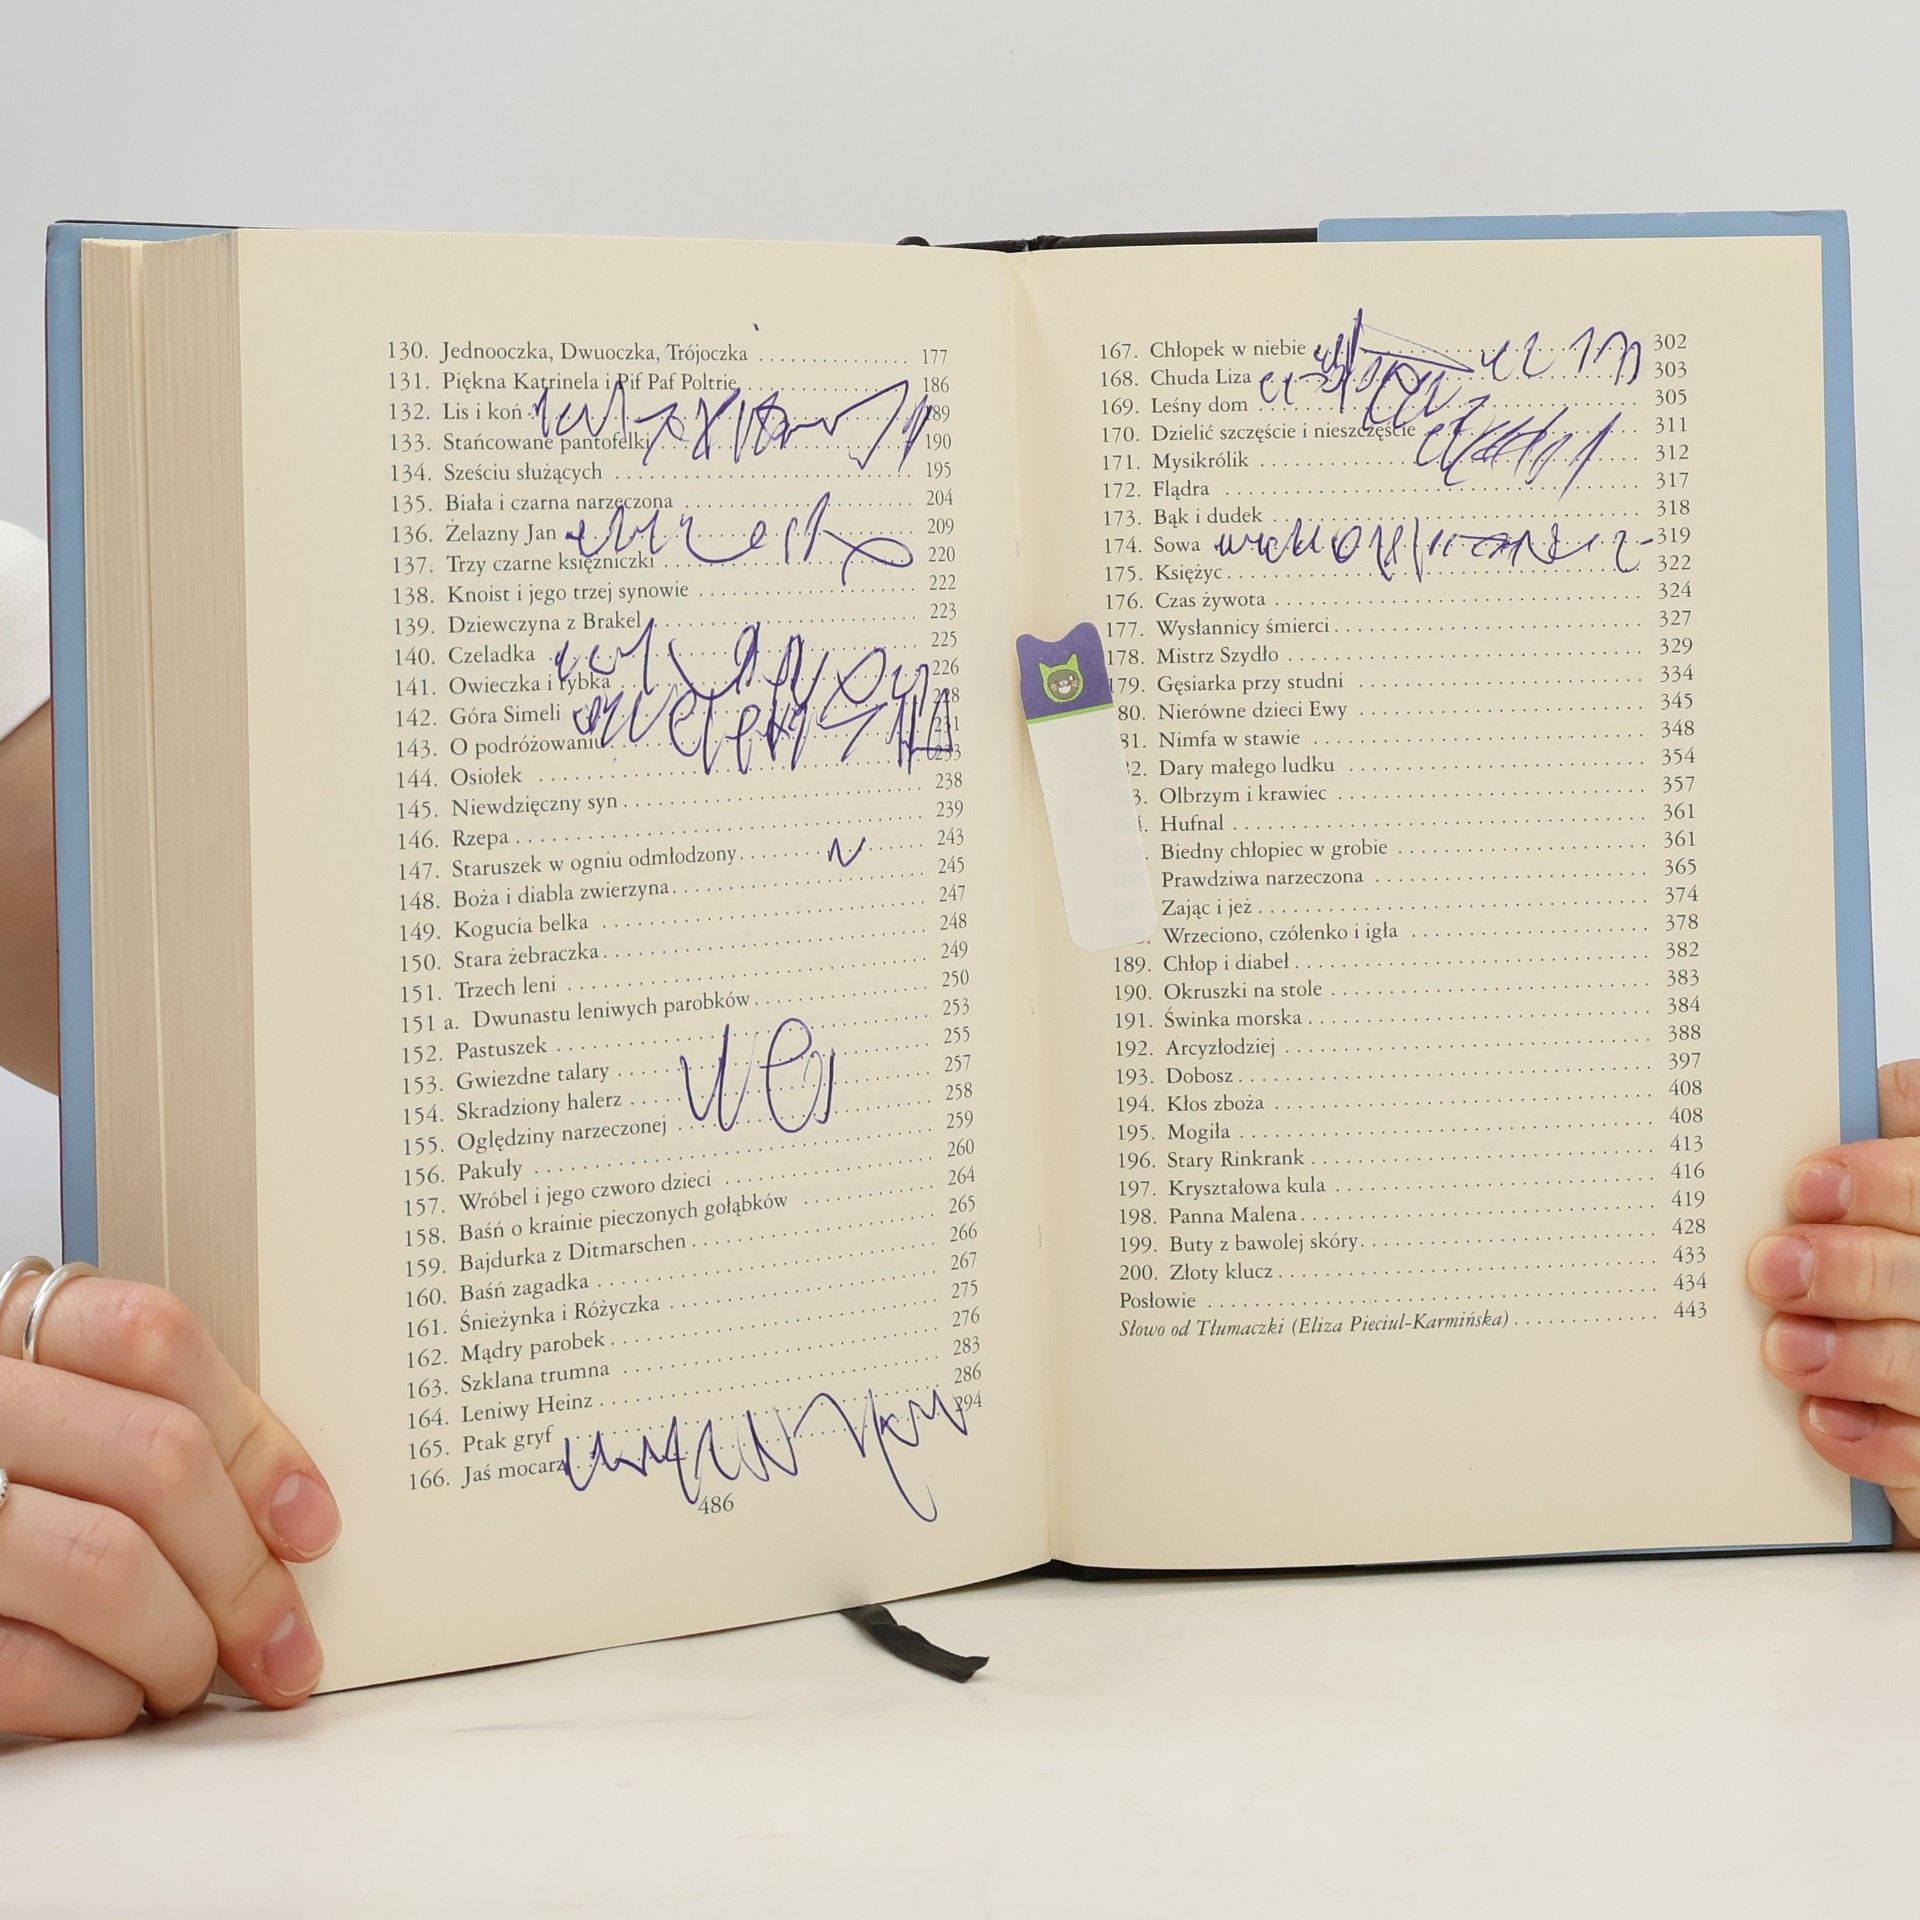 130. Jednooczka, Dwuoczka, Trójoczka .............. 177
131. Piękna Katrinela i Pif Paf Poltrie .............. 186
132. Lis i koń .............. 189
133. Stańcowane pantofelki .............. 190
134. Sześciu służących .............. 195
135. Biała i czarna narzeczona .............. 204
136. Żelazny Jan .............. 209
137. Trzy czarne księżniczki .............. 220
138. Knoist i jego trzej synowie .............. 222
139. Dziewczyna z Brakel .............. 223
140. Czeladka .............. 225
141. Owieczka i rybka .............. 226
142. Góra Simeli .............. 228
143. O podróżowaniu .............. 231
144. Osiołek .............. 233
145. Niewdzięczny syn .............. 238
146. Rzepa .............. 239
147. Staruszek w ogniu odmłodzony .............. 243
148. Boża i diabla zwierzyna .............. 245
149. Kogucia belka .............. 247
150. Stara żebraczka .............. 248
151. Trzech leni .............. 249
151 a. Dwunastu leniwych parobków .............. 250
152. Pastuszek .............. 253
153. Gwiezdne talary .............. 255
154. Skradziony halerz .............. 257
155. Oględziny narzeczonej .............. 258
156. Pakuły .............. 259
157. Wróbel i jego czworo dzieci .............. 260
158. Baśń o krainie pieczonych gołąbków .............. 264
159. Bajdurka z Ditmarschen .............. 265
160. Baśń zagadka .............. 266
161. Śnieżynka i Różyczka .............. 267
162. Mądry parobek .............. 275
163. Szklana trumna .............. 276
164. Leniwy Heinz .............. 283
165. Ptak gryf .............. 286
166. Jaś mocarz .............. 294
486
167. Chłopek w niebie .............. 302
168. Chuda Liza .............. 303
169. Leśny dom .............. 305
170. Dzielić szczęście i nieszczęście .............. 311
171. Mysikrólik .............. 312
172. Flądra .............. 317
173. Bąk i dudek .............. 318
174. Sowa .............. 319
175. Księżyc .............. 322
176. Czas żywota .............. 324
177. Wysłannicy śmierci .............. 327
178. Mistrz Szydło .............. 329
179. Gęsiarka przy studni .............. 334
80. Nierówne dzieci Ewy .............. 345
81. Nimfa w stawie .............. 348
2. Dary małego ludku .............. 354
3. Olbrzym i krawiec .............. 357
Hufnal .............. 361
Biedny chłopiec w grobie .............. 361
Prawdziwa narzeczona .............. 365
Zając i jeż .............. 374
Wrzeciono, czółenko i igła .............. 378
189. Chłop i diabeł .............. 382
190. Okruszki na stole .............. 383
191. Świnka morska .............. 384
192. Arcyzłodziej .............. 388
193. Dobosz .............. 397
194. Kłos zboża .............. 408
195. Mogiła .............. 408
196. Stary Rinkrank .............. 413
197. Kryształowa kula .............. 416
198. Panna Malena .............. 419
199. Buty z bawolej skóry .............. 428
200. Złoty klucz .............. 433
Posłowie .............. 434
Słowo od Tłumaczki (Eliza Pieciul-Karmińska) .............. 443